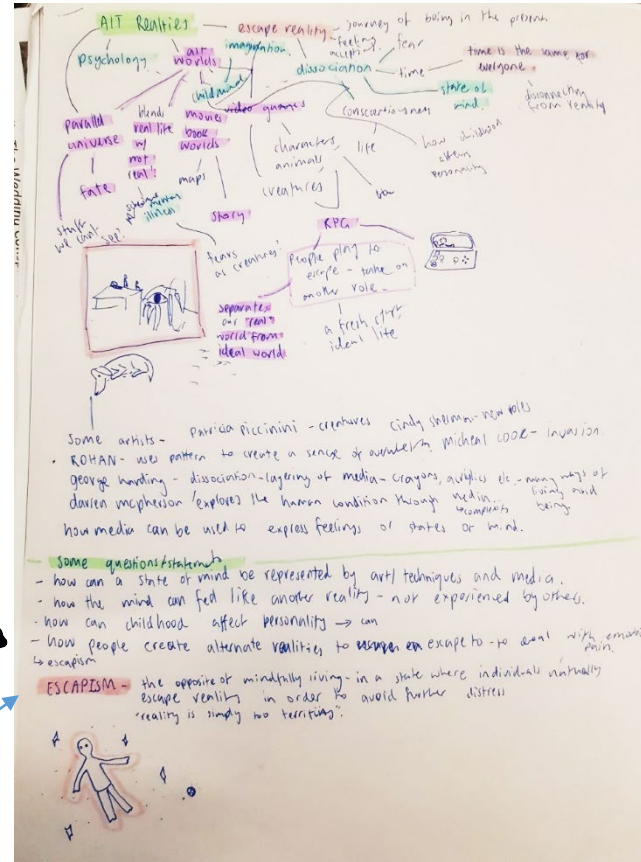 Alt Realties
escape reality
journey of being in the present
feeling
fear
psychology
alt worlds
imagination
dissociation
time
time is the same for everyone.
state of mind.
disconnecting from reality
childmind
video games
parallel universe
blends real life w/ not real?
movies
book
worlds
characters
animals
creatures
life
how childhood
personality
fate
maps
mental illness
story
RPG
stuff we cant see?
fears as creatures?
People play to escape - take on another role -
separates our "real" world from ideal world
a fresh start
ideal life
Some artists - Patricia Piccinini - creatures cindy sherman - new roles
ROHAN - uses pattern to create a sense of micheal COOK - Invasion.
george harding - dissociation - layering of media - crayons, acrylics etc - many ways of living and being.
darren mcpherson 'explores the human condition through media.
how media can be used to express feelings or states of mind.
Some questions/statements
- how can a state of mind be represented by art/ techniques and media.
- how the mind can feel like another reality - not experienced by others.
- how can childhood affect personality → can
- how people create alternate realities to escape to - to deal with pain.
↳ escapism
ESCAPISM - the opposite of mindfully living - in a state where individuals naturally
escape reality in order to avoid further distress
"reality is simply too terrifying".